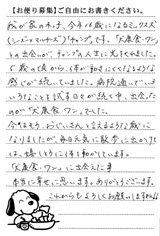 【お便り募集】ご自由にお書きください。
私が家の犬は、今年14歳になるミックス犬
(シーズー×マルチーズ)「チャンプ」です。「犬康食・ワン」
との出会いが、チャンプの人生に光をくれました。
6歳の頃から、体が動きにくくなるような
感じが続いていました。病院通いで、い
ろいろなことを試す日々が続く中、出会った
のが「犬康食・ワン」でした。
今はもう、おじいさんと言えるような歳に
なりましたが、毎日元気に散歩に出かけて
は、嬉しそうに体を動かしています。
「犬康食・ワン」に出会えた事
本当に幸せに思います。ありがとうございます。
これからもよろしくお願いしますね!!